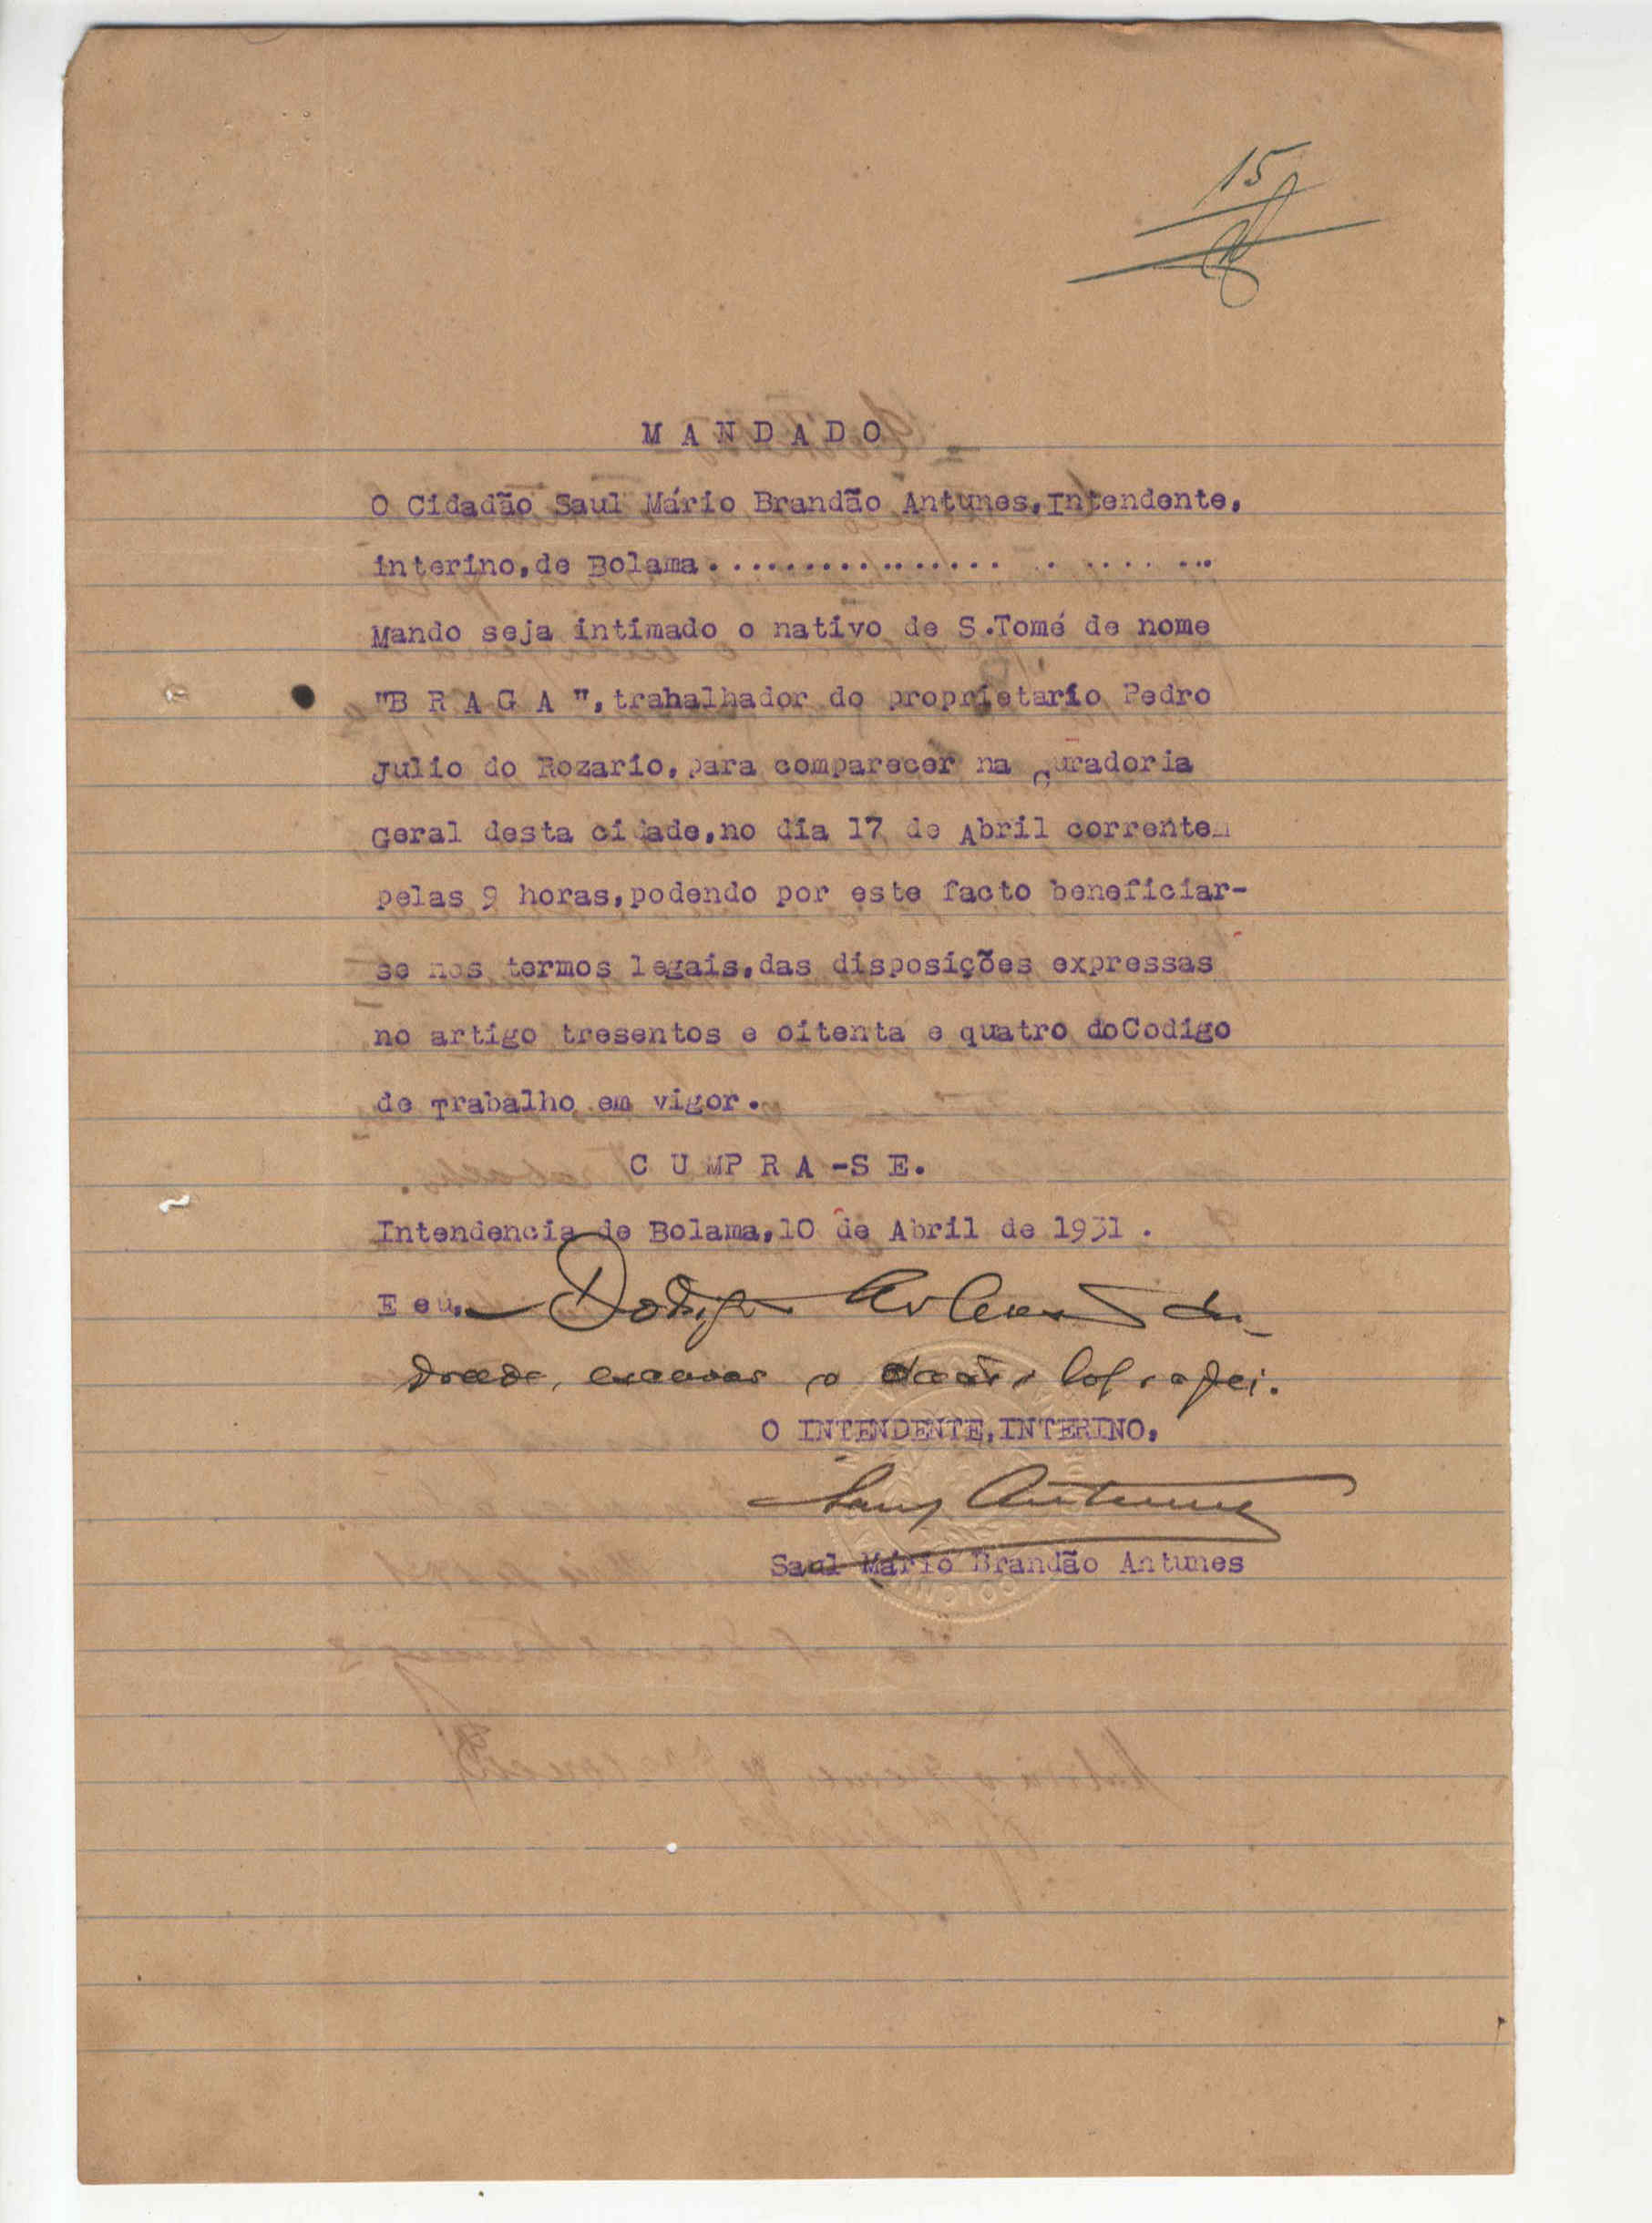 15
M A N D A D O
O Cidadão Saul Mário Brandão Antunes, Intendente,
interino, de Bolama.......................
Mando seja intimado o nativo de S.Tomé de nome
"B R A G A ", trahalhador do proprietario Pedro
Julio do Rozario, para comparecer na Curadoria
Geral desta cidade, no dia 17 de Abril corrente
pelas 9 horas, podendo por este facto beneficiar-
se nos termos legais, das disposições expressas
no artigo tresentos e oitenta e quatro do Codigo
de Trabalho em vigor.
C U M P R A -S E.
Intendencia de Bolama, 10 de Abril de 1931 .
E eu,
drade, o
O INTENDENTE, INTERINO,
Saul Antunes
Saul Mário Brandão Antunes